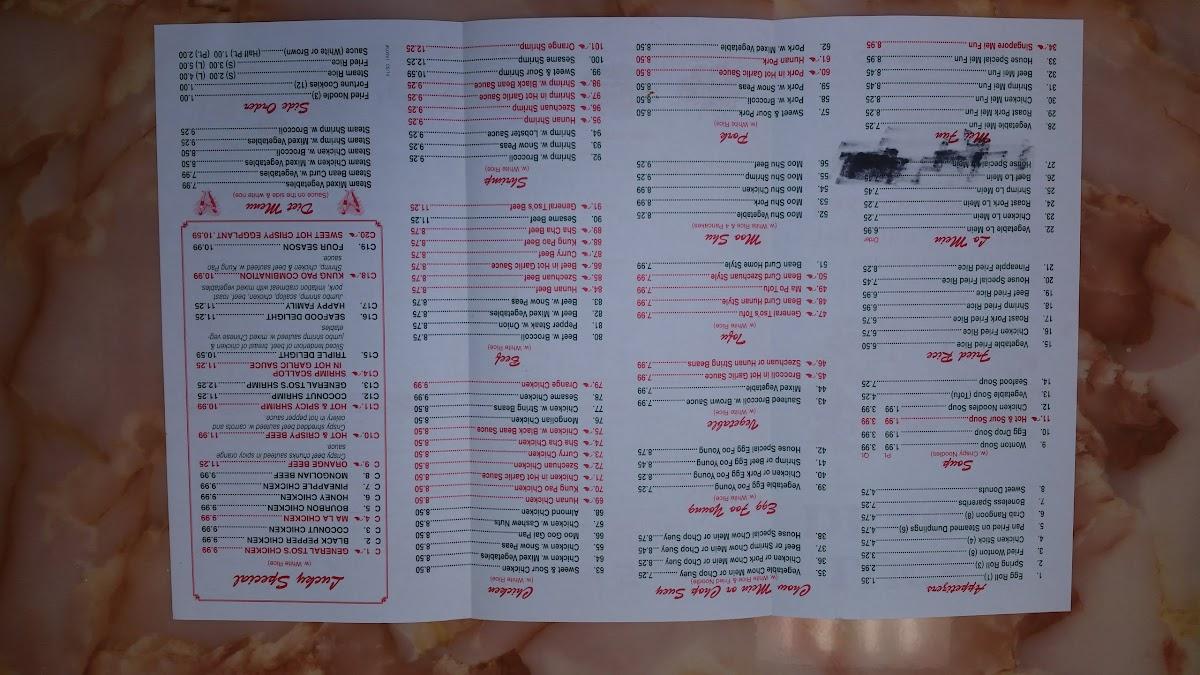 Appetizers
1. Egg Roll (1) 1.35
2. Spring Roll (3) 2.95
3. Fried Wonton (8) 3.25
4. Chicken Stick (4) 4.75
5. Pan Fried on Steamed Dumplings (6) 4.75
6. Crab Rangoon (8) 4.75
7. Boneless Spareribs 7.25
8. Sweet Donuts 4.75
Soup
(w. Crispy Noodles)
Pt. Qt.
9. Wonton Soup 1.99 3.99
10. Egg Drop Soup 1.99 3.99
11. Hot & Sour Soup 1.99 3.99
12. Chicken Noodles Soup 1.99 3.99
13. Vegetable Soup (Tofu Soup) 4.25
14. Seafood Soup 7.25
Fried Rice
15. Vegetable Fried Rice 6.50
16. Chicken Fried Rice 6.75
17. Roast Pork Fried Rice 6.75
18. Shrimp Fried Rice 6.95
19. Beef Fried Rice 6.95
20. House Special Fried Rice 7.45
21. Pineapple Fried Rice 8.25
Lo Mein
Order
22. Vegetable Lo Mein 6.95
23. Chicken Lo Mein 7.25
24. Roast Pork Lo Mein 7.25
25. Shrimp Lo Mein 7.45
26. Beef Lo Mein
27. House Special Lo Mein
Mei Fun
28. Vegetable Mei Fun 7.25
29. Roast Pork Mei Fun 8.25
30. Chicken Mei Fun 8.25
31. Shrimp Mei Fun 8.45
32. Beef Mei Fun 8.45
33. House Special Mei Fun 8.95
34. Singapore Mei Fun 8.95
Chow Mein or Chop Suey
(w. White Rice & Fried Noodle)
35. Vegetable Chow Mein or Chop Suey 7.25
36. Chicken or Pork Chow Mein or Chop Suey 8.25
37. Beef or Shrimp Chow Mein or Chop Suey 8.45
38. House Special Chow Mein or Chop Suey 8.75
Egg Foo Young
(w. White Rice)
39. Vegetable Egg Foo Young 7.25
40. Chicken or Pork Egg Foo Young 8.25
41. Shrimp or Beef Egg Foo Young 8.45
42. House Special Egg Foo Young 8.75
Vegetable
(w. White Rice)
43. Sauteed Broccoli w. Brown Sauce 7.99
44. Mixed Vegetable 7.99
45. Broccoli in Hot Garlic Sauce 7.99
46. Szechuan or Hunan String Beans 7.99
Tofu
(w. White Rice)
47. General Tso's Tofu 7.99
48. Bean Curd Hunan Style 7.99
49. Ma Po Tofu 7.99
50. Bean Curd Szechuan Style 7.99
51. Bean Curd Home Style 7.99
Moo Shu
(w. White Rice & 4 Pancakes)
52. Moo Shu Vegetable 8.25
53. Moo Shu Pork 8.95
54. Moo Shu Chicken 8.95
55. Moo Shu Shrimp 9.25
56. Moo Shu Beef 9.25
Pork
(w. White Rice)
57. Sweet & Sour Pork 8.50
58. Pork w. Broccoli 8.50
59. Pork w. Snow Peas 8.50
60. Pork in Hot Garlic Sauce 8.50
61. Hunan Pork 8.50
62. Pork w. Mixed Vegetable 8.50
Chicken
(w. White Rice)
63. Sweet & Sour Chicken 8.50
64. Chicken w. Mixed Vegetables 8.50
65. Chicken w. Snow Peas 8.50
66. Moo Goo Gai Pan 8.50
67. Chicken w. Cashew Nuts 8.50
68. Almond Chicken 8.50
69. Hunan Chicken 8.50
70. Kung Pao Chicken 8.50
71. Chicken in Hot Garlic Sauce 8.50
72. Szechuan Chicken 8.50
73. Curry Chicken 8.50
74. Sha Cha Chicken 8.50
75. Chicken w. Black Bean Sauce 8.50
76. Mongolian Chicken 8.50
77. Chicken w. String Beans 8.50
78. Sesame Chicken 9.99
79. Orange Chicken 9.99
Beef
(w. White Rice)
80. Beef w. Broccoli 8.75
81. Pepper Steak w. Onion 8.75
82. Beef w. Mixed Vegetables 8.75
83. Beef w. Snow Peas 8.75
84. Hunan Beef 8.75
85. Szechuan Beef 8.75
86. Beef in Hot Garlic Sauce 8.75
87. Curry Beef 8.75
88. Kung Pao Beef 8.75
89. Sha Cha Beef 8.75
90. Sesame Beef 11.25
91. General Tso's Beef 11.25
Shrimp
(w. White Rice)
92. Shrimp w. Broccoli 9.25
93. Shrimp w. Snow Peas 9.25
94. Shrimp w. Lobster Sauce 9.25
95. Hunan Shrimp 9.25
96. Szechuan Shrimp 9.25
97. Shrimp in Hot Garlic Sauce 9.25
98. Shrimp w. Black Bean Sauce 9.25
99. Sweet & Sour Shrimp 10.59
100. Sesame Shrimp 12.25
101. Orange Shrimp 12.25
Lucky Special
(w. White Rice)
C 1. GENERAL TSO'S CHICKEN 9.99
C 2. BLACK PEPPER CHICKEN 9.99
C 3. COCONUT CHICKEN 9.99
C 4. MA LA CHICKEN 9.99
C 5. BOURBON CHICKEN 9.99
C 6. HONEY CHICKEN 9.99
C 7. PINEAPPLE CHICKEN 9.99
C 8. MONGOLIAN BEEF 9.99
C 9. ORANGE BEEF 11.25
Crispy beef chunks sauteed in spicy orange
sauce
C10. HOT & CRISPY BEEF 11.99
Crispy shredded beef sauteed w carrots and
celery in hot pepper sauce
C11. HOT & SPICY SHRIMP 10.99
C12. COCONUT SHRIMP 10.99
C13. GENERAL TSO'S SHRIMP 12.25
C14. SHRIMP SCALLOP
IN HOT GARLIC SAUCE 11.25
C15. TRIPLE DELIGHT 10.59
Sliced tenderloin of beef, breast of chicken &
jumbo shrimp sauteed w mixed Chinese veg-
etables
C16. SEAFOOD DELIGHT 11.25
C17. HAPPY FAMILY 11.25
Jumbo shrimp, scallop, chicken, beef, roast
pork, imitation crabmeat with mixed vegetables
C18. KUNG PAO COMBINATION 10.99
Shrimp, chicken & beef sauteed w. Kung Pao
sauce
C19. FOUR SEASON 10.99
C20. SWEET HOT CRISPY EGGPLANT 10.59
Diet Menu
(Sauce on the side & white rice)
Steam Mixed Vegetables 7.99
Steam Bean Curd w. Vegetables 7.99
Steam Chicken w. Mixed Vegetables 8.50
Steam Chicken w. Broccoli 8.50
Steam Shrimp w. Mixed Vegetables 9.25
Steam Shrimp w. Broccoli 9.25
Side Order
Fried Noodle (3) 1.00
Fortune Cookies (12) 1.00
Steam Rice (S) 2.00 (L) 4.00
Fried Rice (S) 3.00 (L) 5.00
Sauce (White or Brown) (Half Pt.) 1.00 (Pt.) 2.00